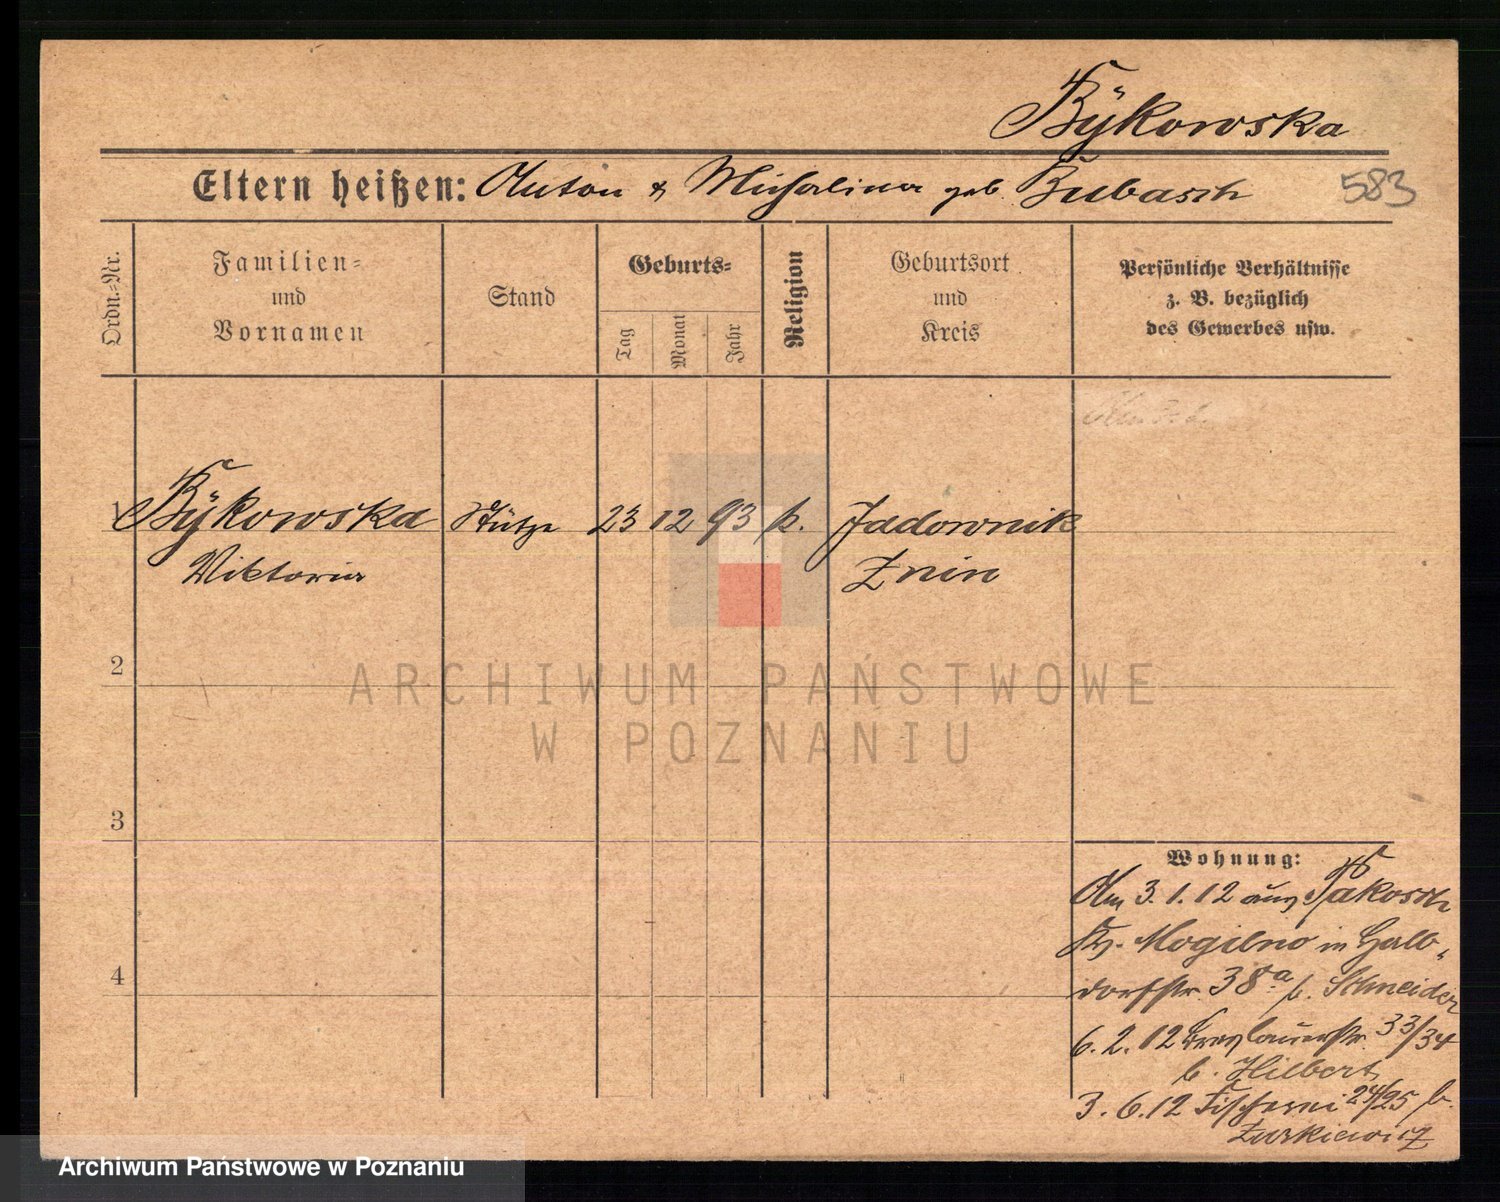 Bÿkowska
Eltern heißen: Anton & Michalina geb. Bubasch
583
Ordn.=Nr.
Familien=
und
Vornamen
Stand
Geburts=
Tag
Monat
Jahr
Religion
Geburtsort
und
Kreis
Persönliche Verhältnisse
z. B. bezüglich
des Gewerbes usw.
1 Bÿkowska Stütze 23 12 93 k. Jadownik
Viktoria Znin
2
3
4
Wohnung:
Am 3.1.12 aus Pakosch
Kr. Mogilno in Halb-
dorfstr. 38a b. Schneider
6.2.12 Breslauerstr. 33/34
b. Hilbert
3.6.12 Fischerei 24/25 b.
Zurkiewicz
ARCHIWUM PAŃSTWOWE
W POZNANIU
Archiwum Państwowe w Poznaniu